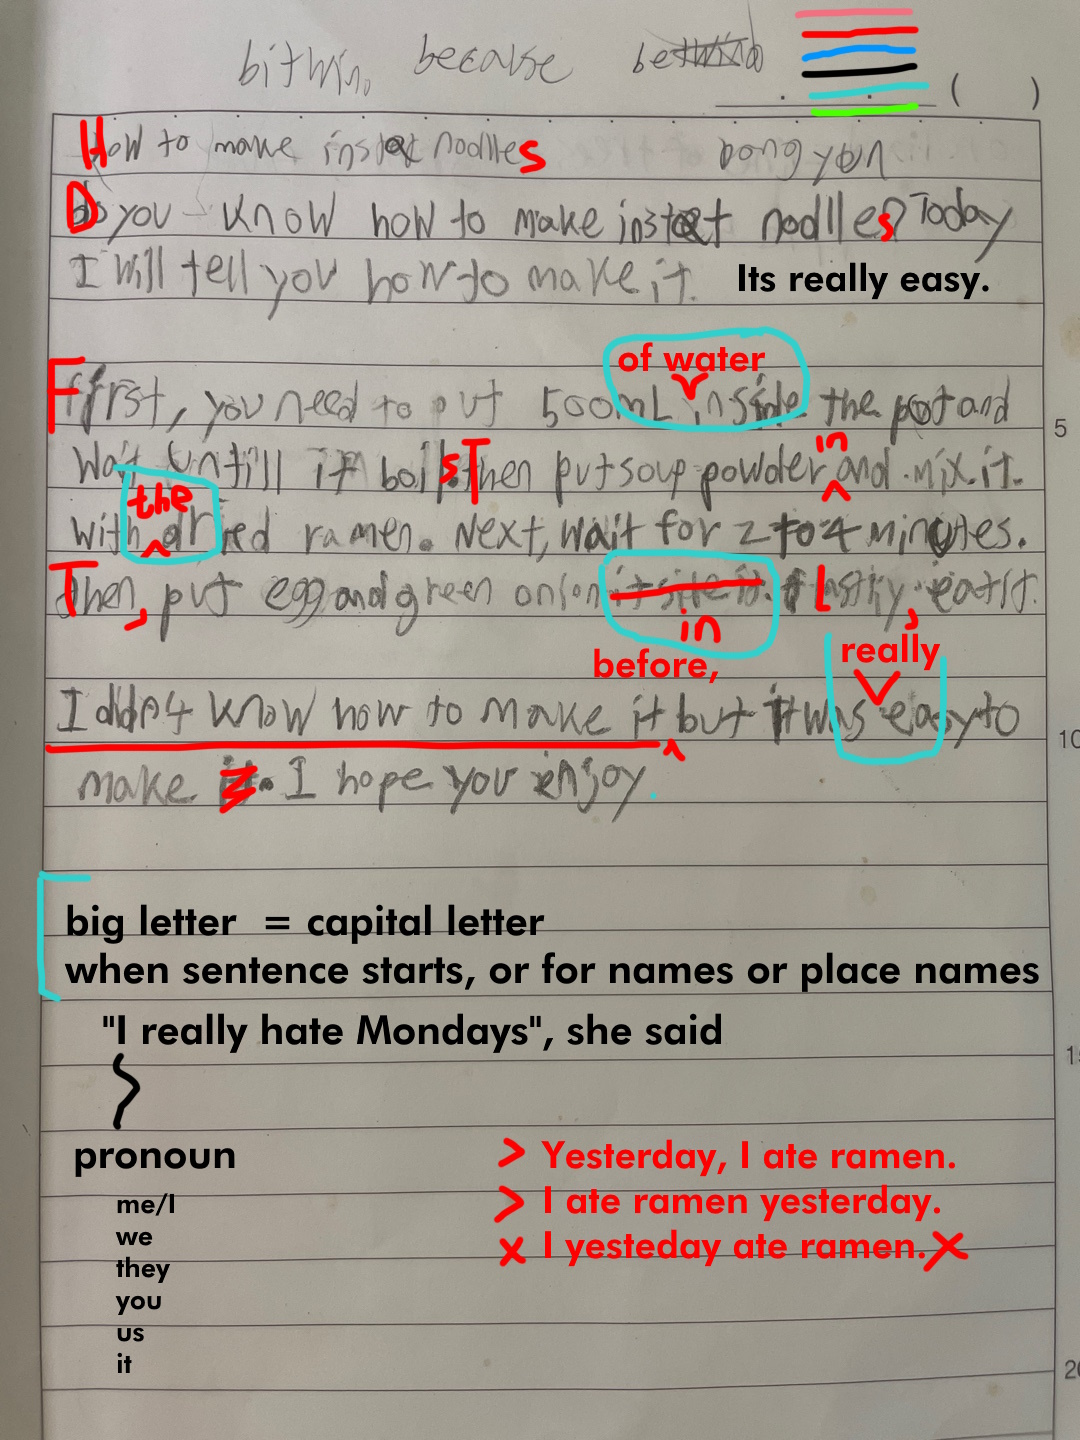 bitwin, because
( )
How to make instact nodlles bong yun
Do you know how to make instact nodlles? Today
I will tell you how to make it. Its really easy.
of water
First, you need to put 500mL inside the pot and
5
in
Wait untill it boils. Then put soup powder and mix it.
the
with dried ramen. Next, wait for 2 to 4 minutes.
Then, put egg and green onion Lastly, eat it.
in
before, really
I didn4 know how to make it but it was easy to
10
make . I hope you enjoy.
big letter = capital letter
when sentence starts, or for names or place names
"I really hate Mondays", she said
pronoun > Yesterday, I ate ramen.
me/I > I ate ramen yesterday.
we x I yesteday ate ramen. x
they
you
us
it
20